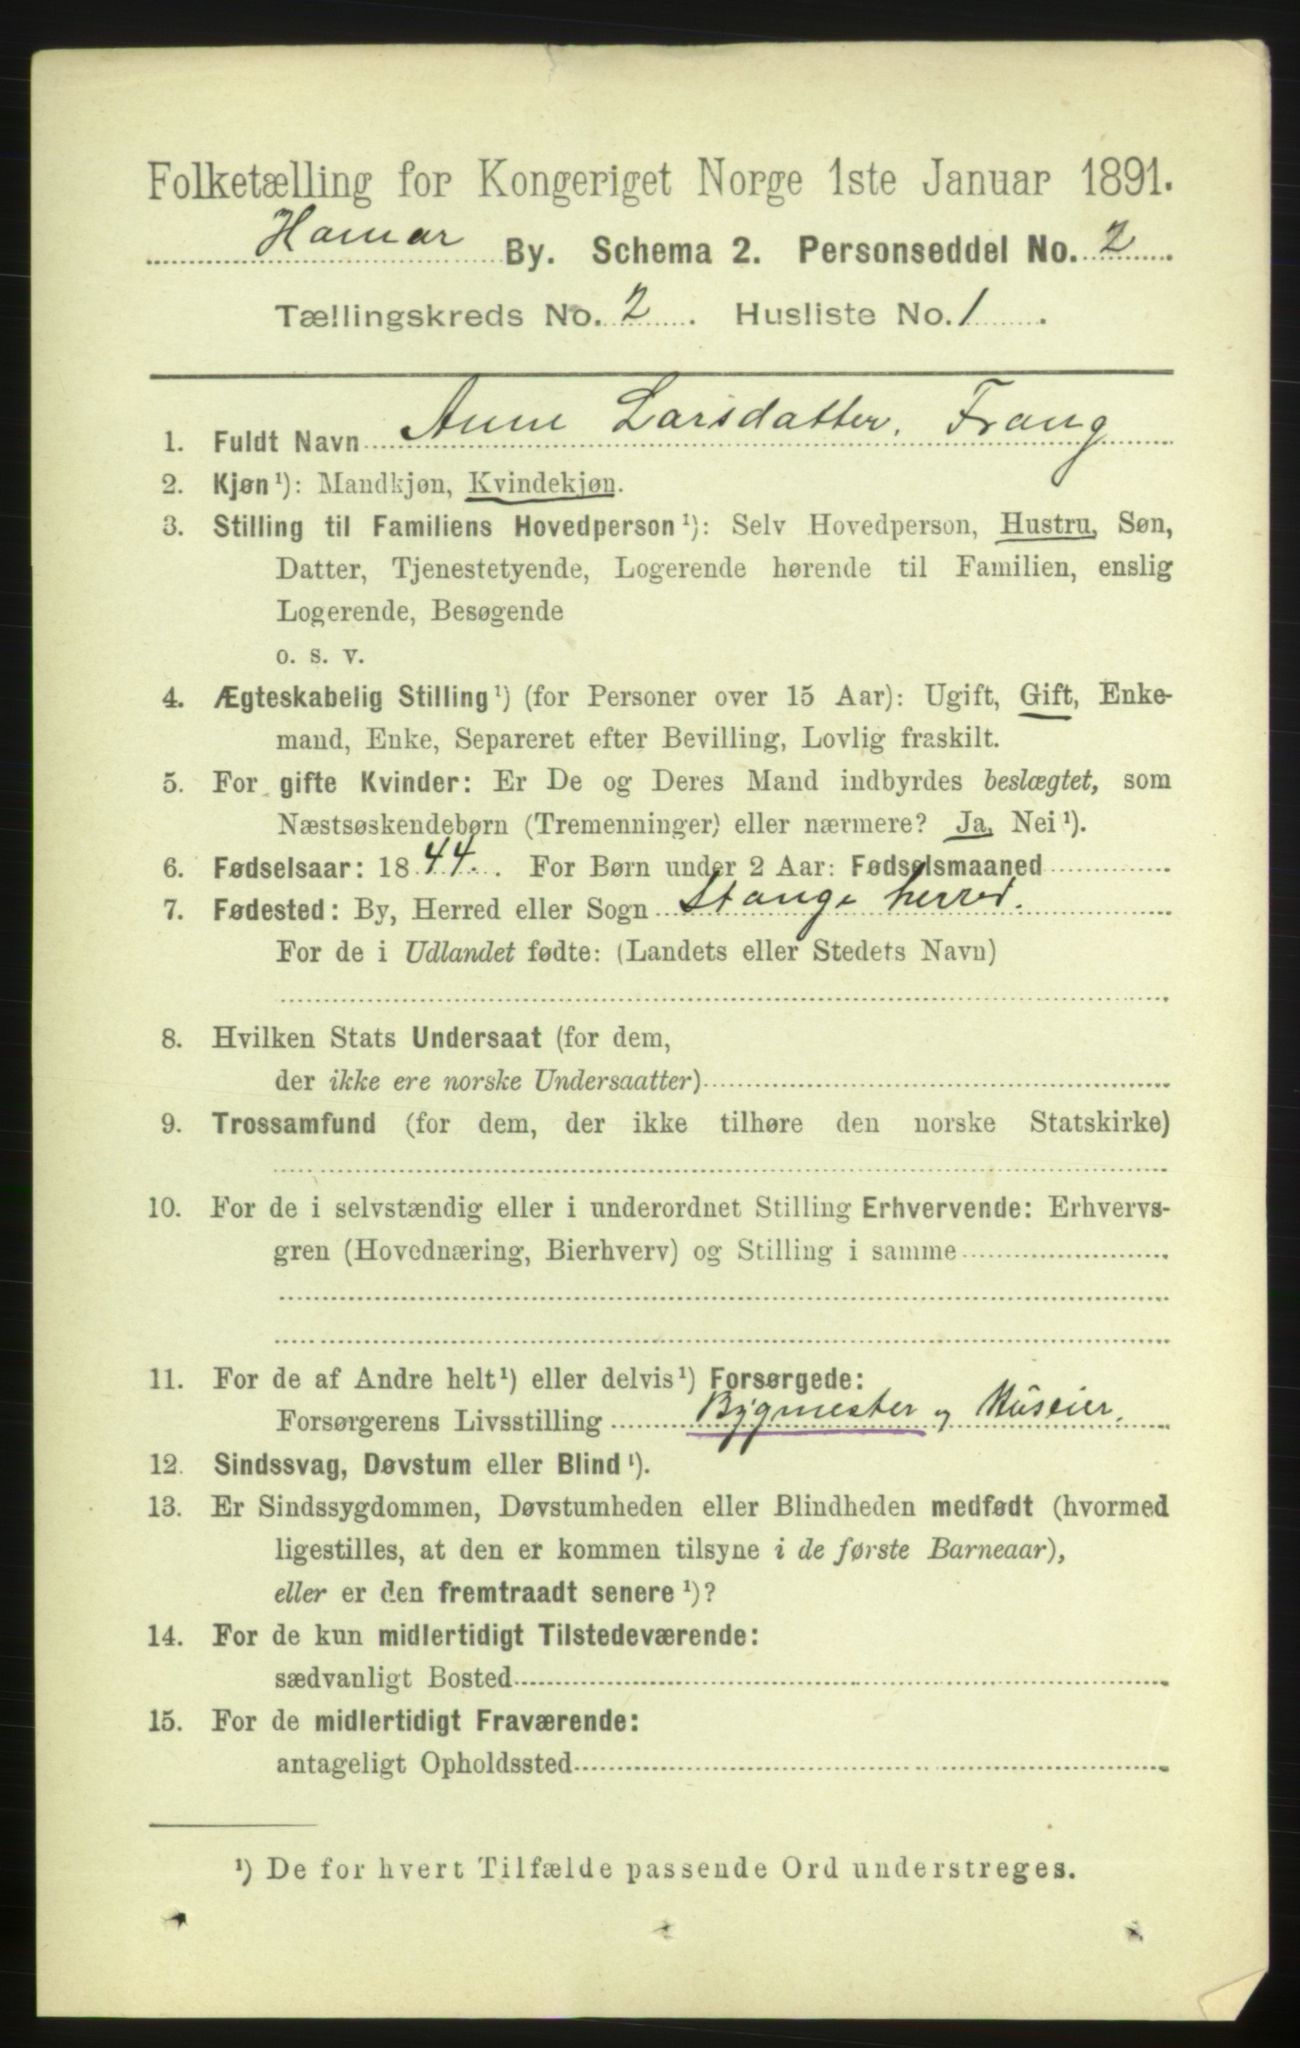 Folketælling for Kongeriget Norge 1ste Januar 1891.
Hamar By. Schema 2. Personseddel No. 2
Tællingskreds No. 2. Husliste No. 1.
1. Fuldt Navn Anne Larsdatter. Frang
2. Kjøn¹): Mandkjøn, Kvindekjøn.
3. Stilling til Familiens Hovedperson¹): Selv Hovedperson, Hustru, Søn,
Datter, Tjenestetyende, Logerende hørende til Familien, enslig
Logerende, Besøgende
o. s. v.
4. Ægteskabelig Stilling¹) (for Personer over 15 Aar): Ugift, Gift, Enke-
mand, Enke, Separeret efter Bevilling, Lovlig fraskilt.
5. For gifte Kvinder: Er De og Deres Mand indbyrdes beslægtet, som
Næstsøskendebørn (Tremenninger) eller nærmere? Ja, Nei¹).
6. Fødselsaar: 1844. For Børn under 2 Aar: Fødselsmaaned
7. Fødested: By, Herred eller Sogn Stange herred.
For de i Udlandet fødte: (Landets eller Stedets Navn)
8. Hvilken Stats Undersaat (for dem,
der ikke ere norske Undersaatter)
9. Trossamfund (for dem, der ikke tilhøre den norske Statskirke)
10. For de i selvstændig eller i underordnet Stilling Erhvervende: Erhvervs-
gren (Hovednæring, Bierhverv) og Stilling i samme
11. For de af Andre helt¹) eller delvis¹) Forsørgede:
Forsørgerens Livsstilling Bygmester og Huseier.
12. Sindssvag, Døvstum eller Blind¹).
13. Er Sindssygdommen, Døvstumheden eller Blindheden medfødt (hvormed
ligestilles, at den er kommen tilsyne i de første Barneaar),
eller er den fremtraadt senere¹)?
14. For de kun midlertidigt Tilstedeværende:
sædvanligt Bosted
15. For de midlertidigt Fraværende:
antageligt Opholdssted
¹) De for hvert Tilfælde passende Ord understreges.